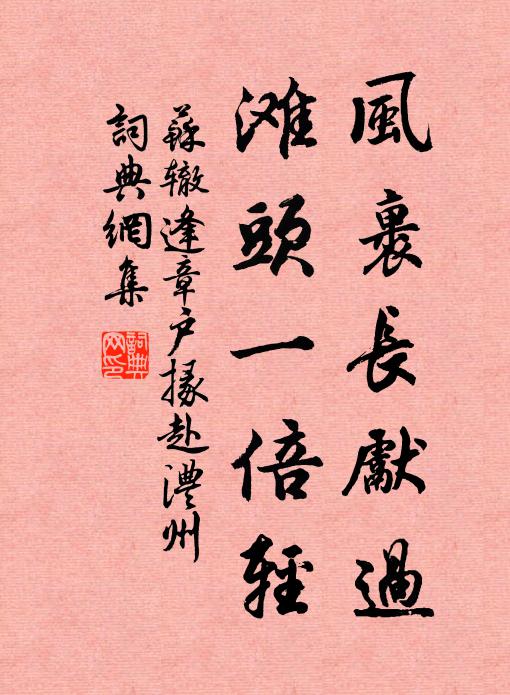 風裏長獻過
滩頭一倍輕
蘇辙逢章户掾赴澧州
詞典網集
詞典
网印